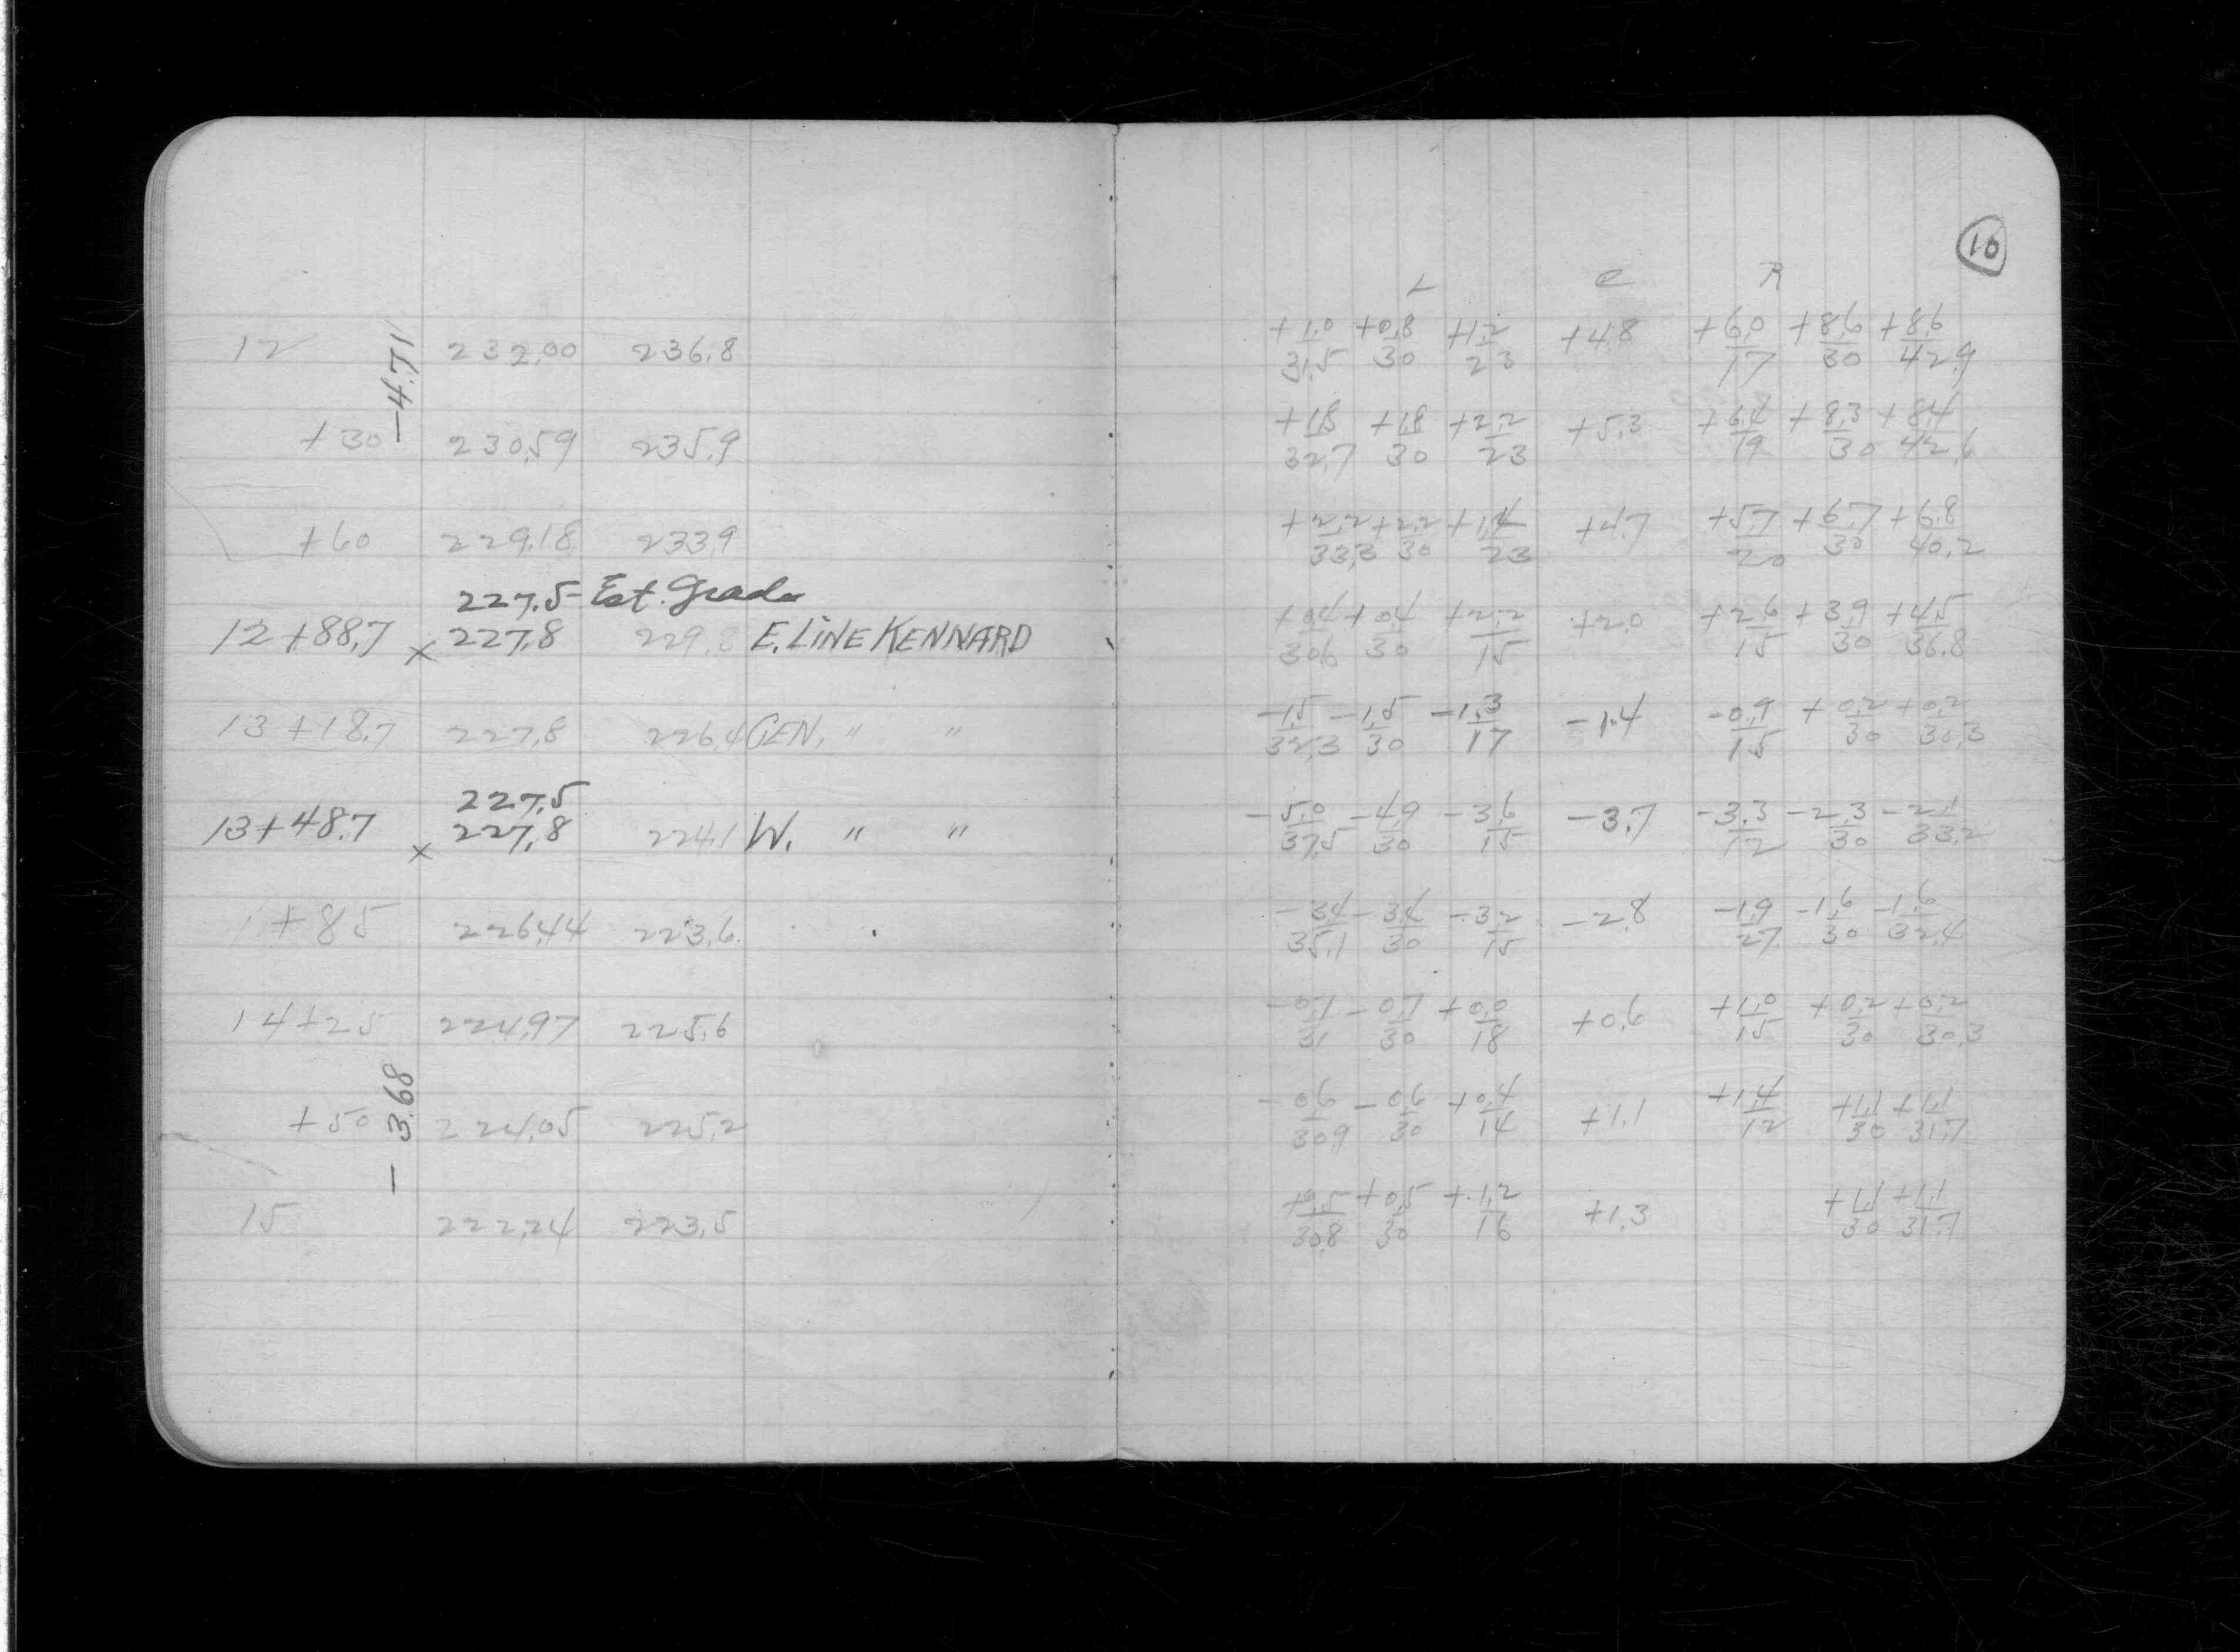 16
L C R
12 232.00 236.8
+1.0/31.5 +0.8/30 +1.2/23 +4.8 +6.0/17 +8.6/30 +8.6/42.9
-4.71
+30 230.59 235.9
+1.8/32.7 +1.8/30 +2.2/23 +5.3 +6.4/19 +8.3/30 +8.4/42.6
+60 229.18 233.9
+2.2/33.3 +2.2/30 +1.4/23 +4.7 +5.7/20 +6.7/30 +6.8/40.2
227.5 Est. Grade
12+88.7 x 227.8 229.8 E. LINE KENNARD
+0.4/30.6 +0.4/30 +2.2/15 +2.0 +2.6/15 +3.9/30 +4.5/36.8
13+18.7 227.8 226.4 CEN. " "
-1.5/32.3 -1.5/30 -1.3/17 -1.4 -0.9/15 +0.2/30 +0.2/30.3
227.5
13+48.7 x 227.8 224.1 W. " "
-5.0/37.5 -4.9/30 -3.6/15 -3.7 -3.3/12 -2.3/30 -2.1/33.2
+85 226.44 223.6
-3.4/35.1 -3.4/30 -3.2/15 -2.8 -1.9/27 -1.6/30 -1.6/32.4
14+25 224.97 225.6
-0.7/31 -0.7/30 +0.0/18 +0.6 +1.0/15 +0.2/30 +0.2/30.3
-3.68
+50 224.05 225.2
-0.6/30.9 -0.6/30 +0.4/14 +1.1 +1.4/12 +1.1/30 +1.1/31.7
15 222.24 223.5
+0.5/30.8 +0.5/30 +1.2/16 +1.3 +1.1/30 +1.1/31.7